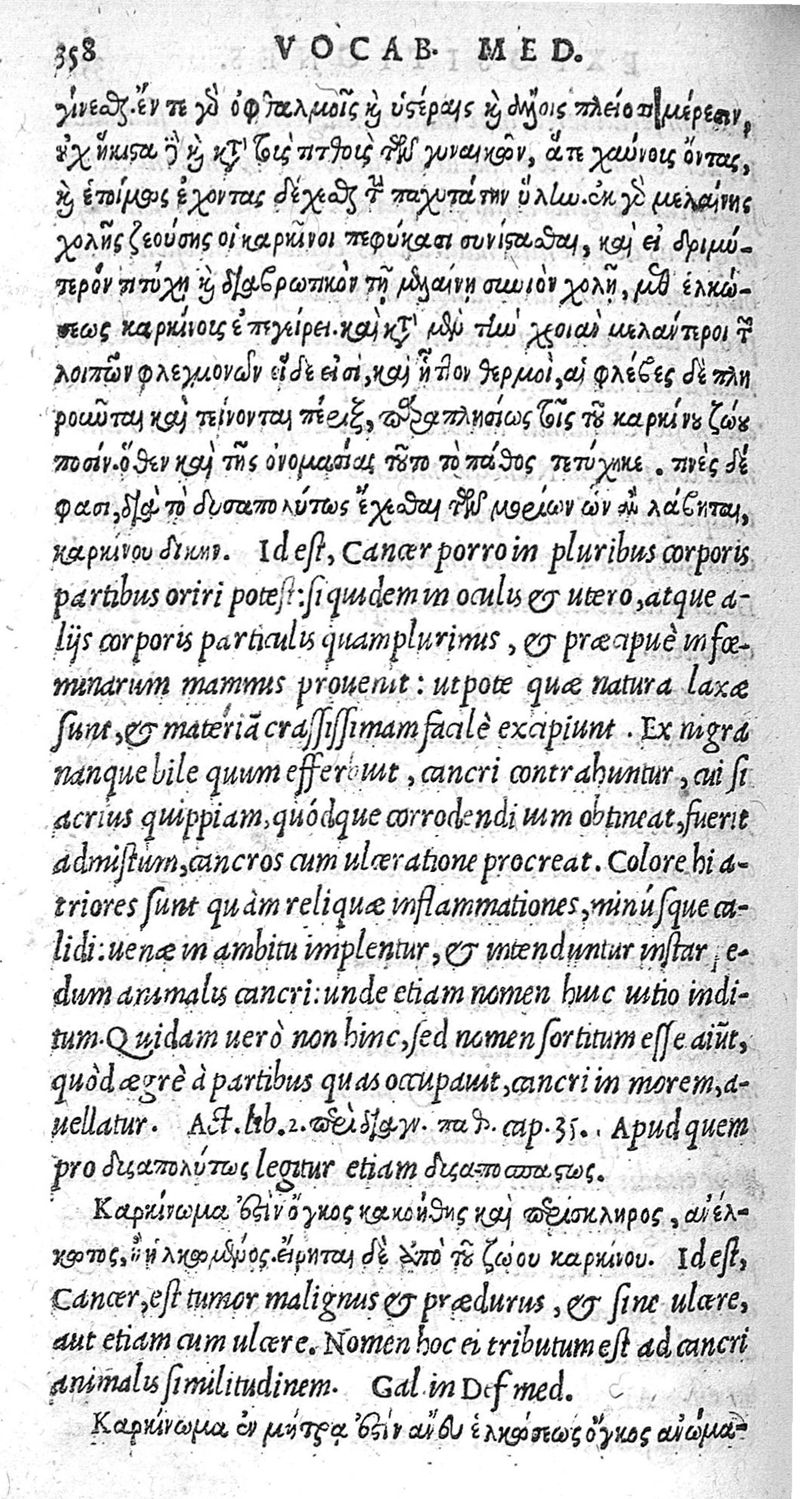 358 VOCAB. MED.
γίνεσθαι. ἔν τε γὰρ ὀφθαλμοῖς καὶ ὑστέραις καὶ ἄλλοις πλείοσι μέρεσιν,
οὐχ ἥκιστα δὲ καὶ κατὰ τοὺς τιτθοὺς τῶν γυναικῶν, ἅτε χαύνους ὄντας,
καὶ ἑτοίμως ἔχοντας δέχεσθαι τὴν παχυτάτην ὕλην. ἐκ γὰρ μελαίνης
χολῆς ζεούσης οἱ καρκῖνοι πεφύκασι συνίστασθαι, καὶ εἰ δριμύ-
τερόν τι τύχῃ καὶ διαβρωτικὸν τῇ μελαίνῃ συνιὸν χολῇ, μεθ' ἑλκώ-
σεως καρκίνους ἐπεγείρει. καὶ κατὰ μὲν τὴν χροιὰν μελάντεροι τῶν
λοιπῶν φλεγμονῶν οἵδε εἰσὶ, καὶ ἧττον θερμοὶ, αἱ φλέβες δὲ πλη
ροῦνται καὶ τείνονται πέριξ, παραπλησίως τοῖς τοῦ καρκίνου ζώου
ποσίν. ὅθεν καὶ τῆς ὀνομασίας τοῦτο τὸ πάθος τετύχηκε. τινὲς δέ
φασι, διὰ τὸ δυσαπολύτως ἔχεσθαι τῶν μορίων ὧν ἂν λάβηται,
καρκίνου δίκην. Id est, Cancer porro in pluribus corporis
partibus oriri potest: siquidem in oculis & utero, atque a-
lijs corporis particulis quamplurimis, & præcipuè in fœ-
minarum mammis prouenit: utpote quæ natura laxæ
sunt, & materiã crassissimam facilè excipiunt. Ex nigra
nanque bile quum efferbuit, cancri contrahuntur, cui si
acrius quippiam, quódque corrodendi uim obtineat, fuerit
admistum, cancros cum ulceratione procreat. Colore hi a-
triores sunt quàm reliquæ inflammationes, minúsque ca-
lidi: uenæ in ambitu implentur, & intenduntur instar pe-
dum animalis cancri: unde etiam nomen huic uitio indi-
tum. Quidam uerò non hinc, sed nomen sortitum esse aiũt,
quòd ægrè à partibus quas occupauit, cancri in morem, a-
uellatur. Act. lib. 2. περὶ διαγν. παθ. cap. 35. Apud quem
pro δυσαπολύτως legitur etiam δυσαποσπάστως.
Καρκίνωμα ἐστὶν ὄγκος κακοήθης καὶ περίσκληρος, ἀνέλ-
κωτος, ἢ ἡλκωμένος. εἴρηται δὲ ἀπὸ τοῦ ζώου καρκίνου. Id est,
Cancer, est tumor malignus & prædurus, & sine ulcere,
aut etiam cum ulcere. Nomen hoc ei tributum est ad cancri
animalis similitudinem. Gal. in Def med.
Καρκίνωμα ἐν μήτρᾳ ἐστὶν ἄνευ ἑλκώσεως ὄγκος ἀνώμα-